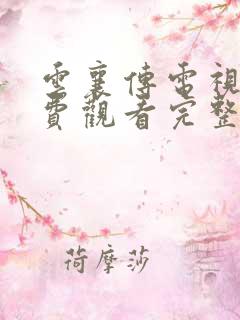 雲襄傳電視
費觀看完整
荷摩莎